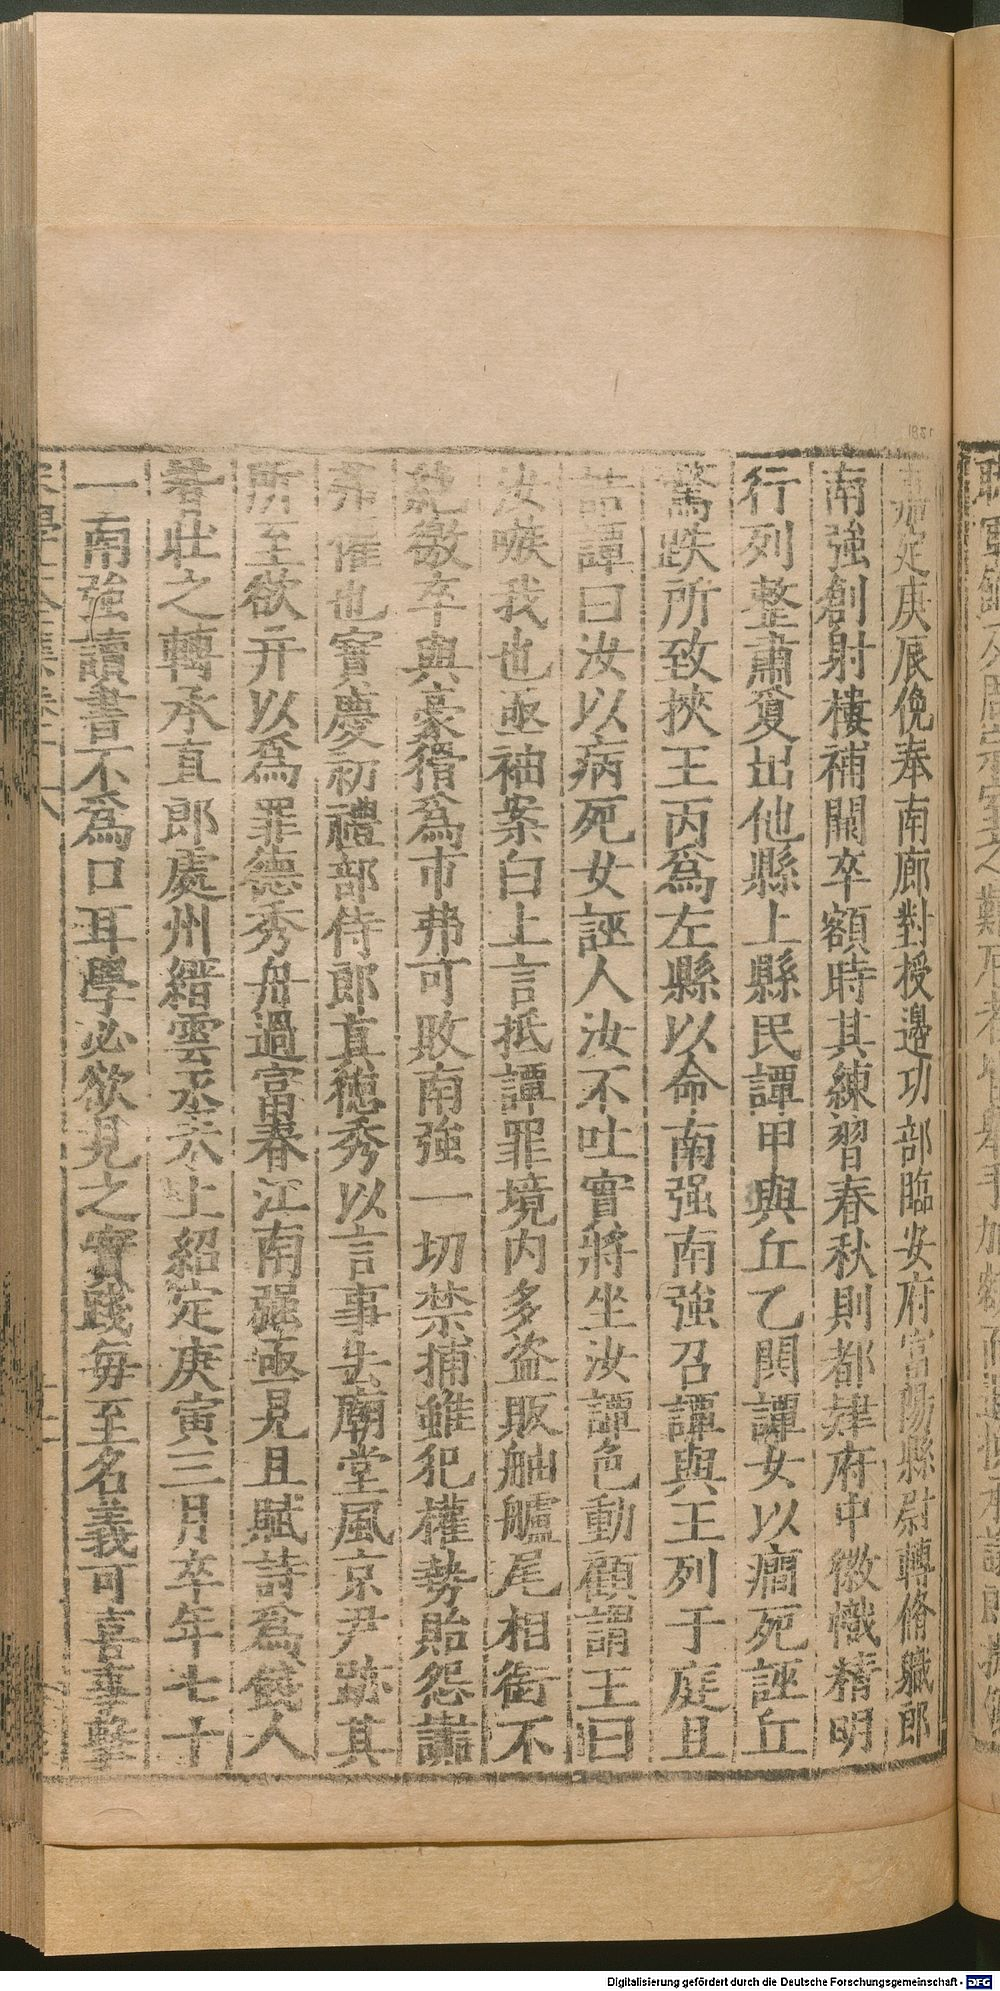 嘉定庚辰俛奉南廊對授邊功部臨安府富陽縣尉轉脩職郎
南強創射樓補闕卒額時其練習春秋則都肄府中徽幟精明
行列整肅夐出他縣上縣民譚甲與丘乙鬨譚女以癎死誣丘
驚跌所致挾王丙爲左縣以命南强南強召譚與王列于庭且
詰譚曰汝以病死女誣人汝不吐實將坐汝譚色動顧謂王曰
汝嗾我也亟袖案白上言抵譚罪境内多盗販舳艫尾相銜不
絶徼卒與豪猾爲市弗可敗南強一切禁捕雖犯權勢貽怨讟
弗傕也寳慶初禮部侍郎真德秀以言事去廟堂風京尹跡其
所至欲并以爲罪德秀舟過富春江南强亟見且賦詩爲餞人
咸壯之轉承直郎處州縉雲丞未上紹定庚寅三月卒年七十
一南強讀書不爲口耳學必欲見之實踐每至名義可喜事擊
宋學士文集卷十八
Digitalisierung gefördert durch die Deutsche Forschungsgemeinschaft - DFG